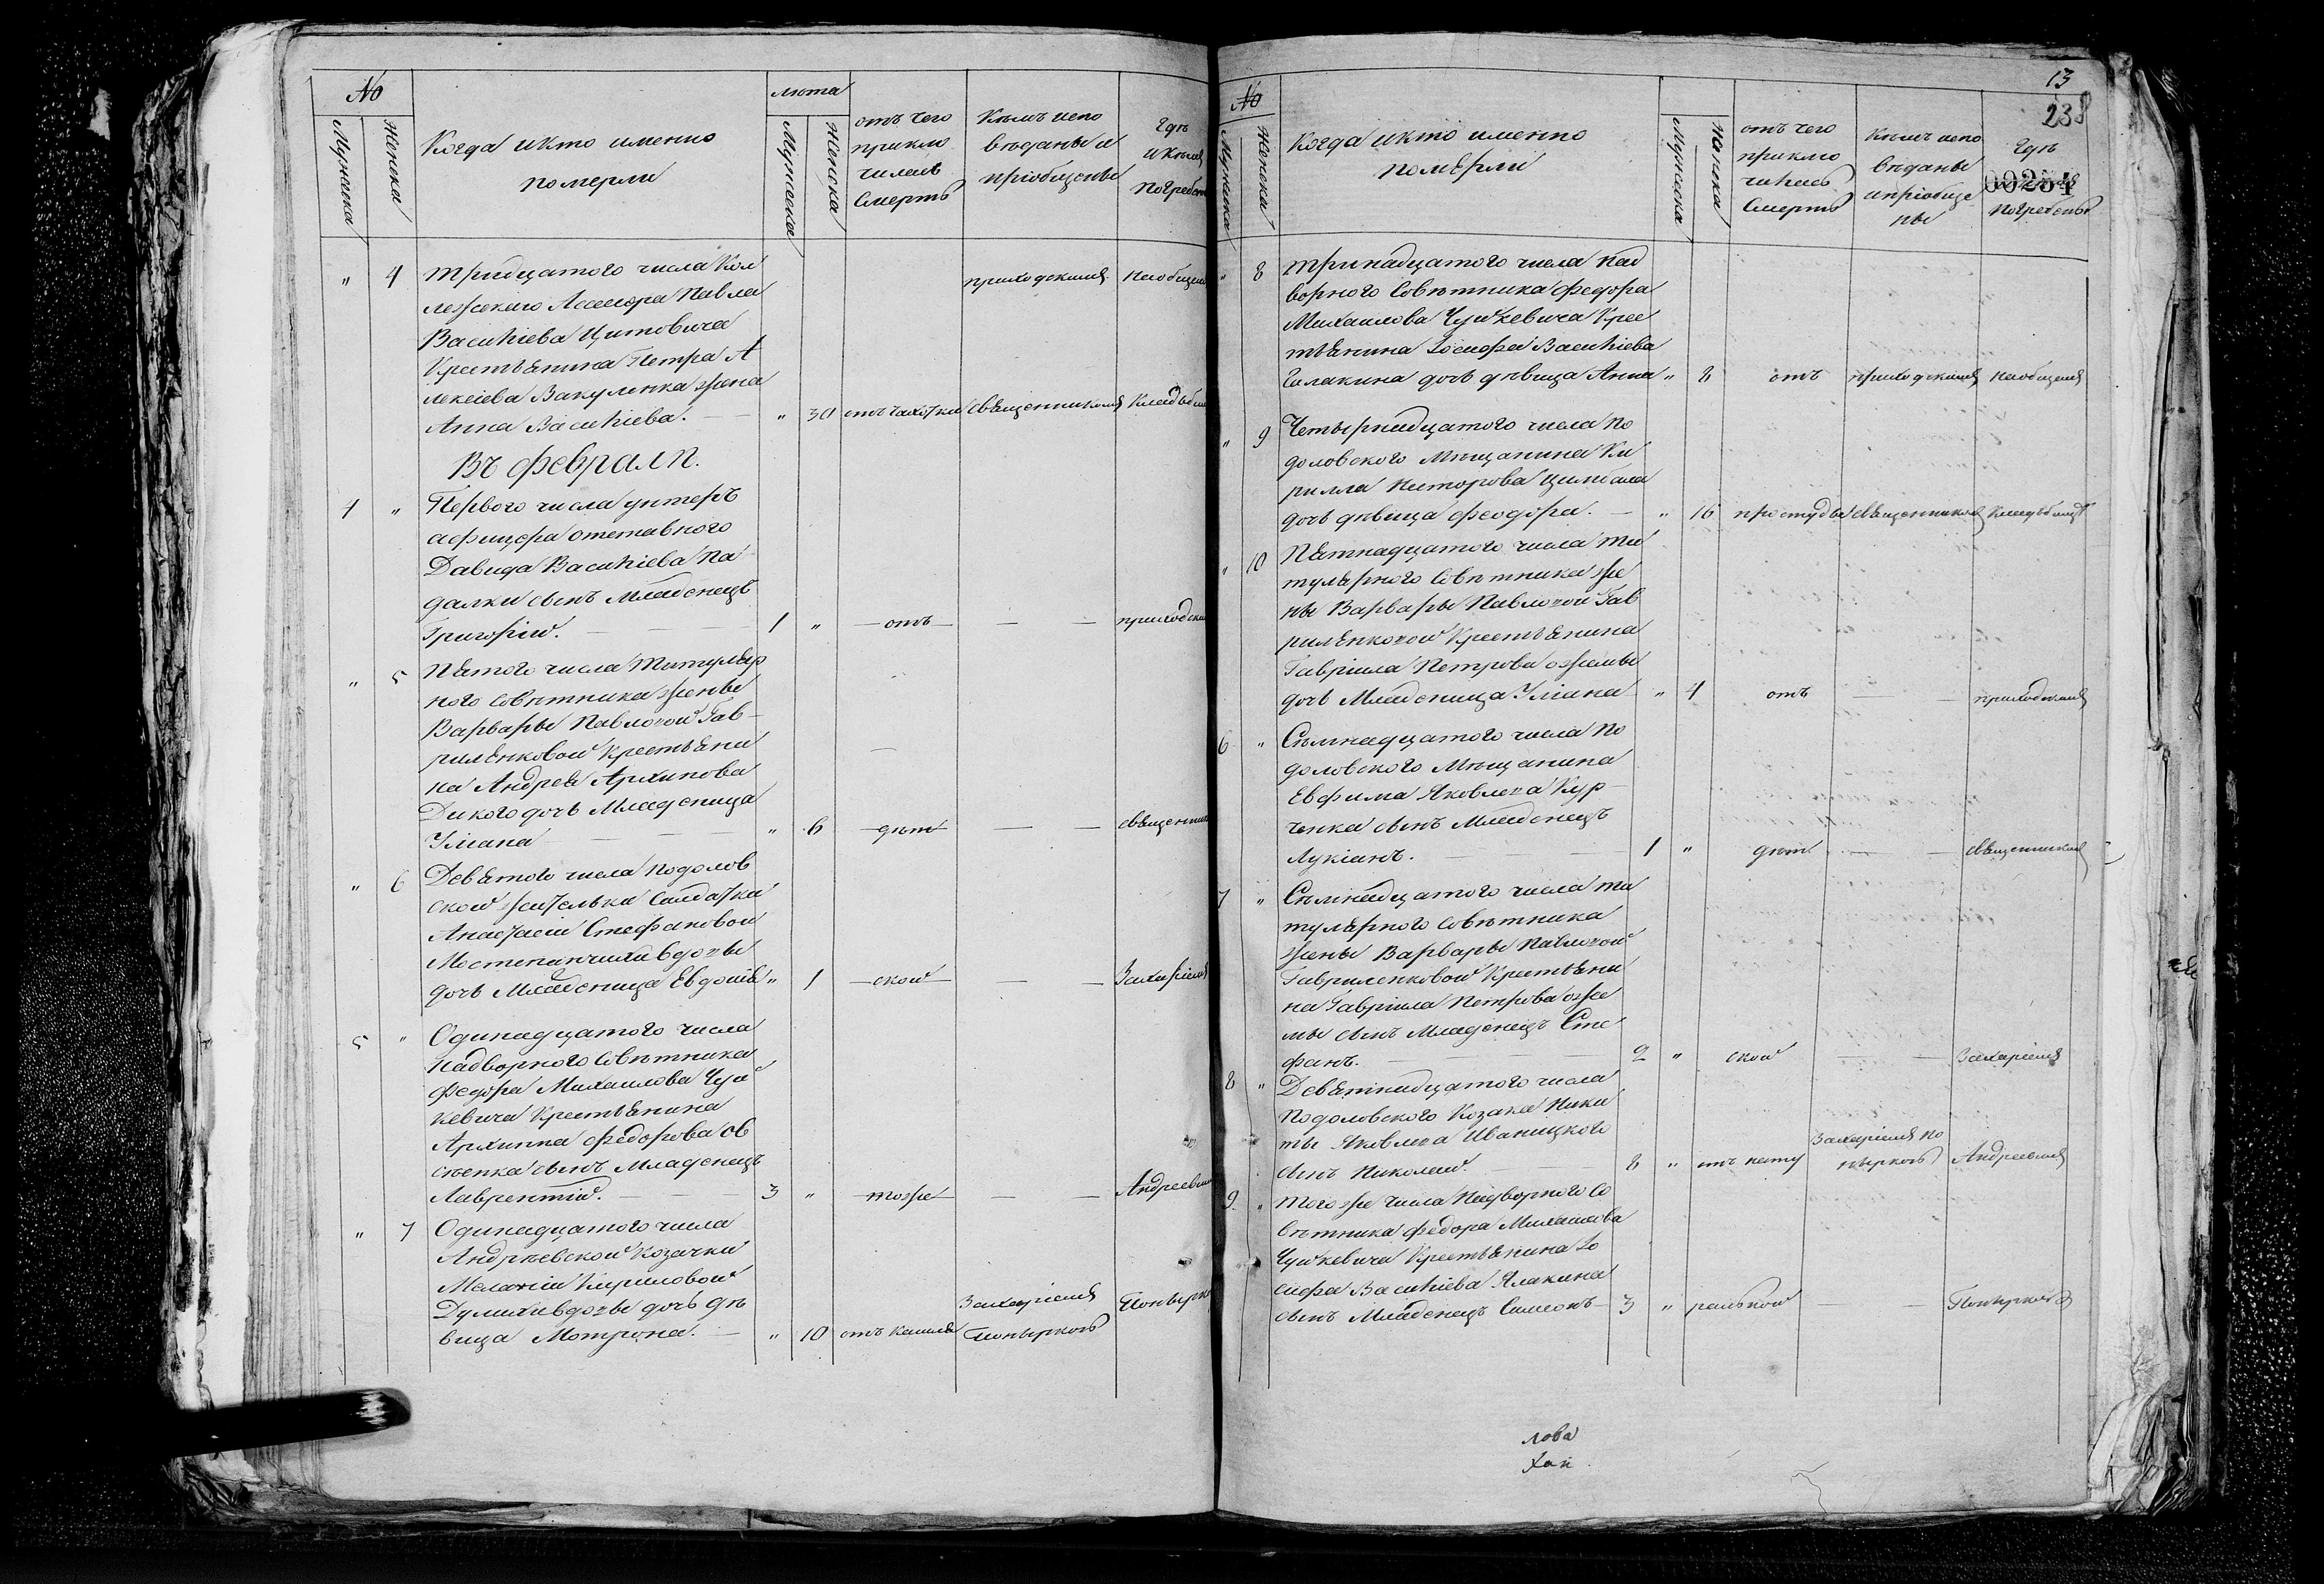 №
Мужеска
Женска
Когда и кто именно
померли
лѣта
Мужеска
Женска
отъ чего
приклю
чилась
смерть
Кѣмъ испо
вѣданы и
пріобщены
Гдѣ
и кѣмъ
погребены
" 4 тридцатого числа Кол
лежскаго Ассесора Павла
Василіева Цитовича
Крестьянина Петра А
лексіева Вакуленка жена
Анна Василіева. — " 30 отъ чахотки
приходскимъ
священникомъ
на общемъ
кладбищ
Въ февралѣ.
4 " Первого числа унтеръ
афицера отставного
Давида Василіева Па
далки сынъ младенецъ
Григорій. — 1 " — отъ — — — приходски
" 5 Пятого числа титуляр
ного совѣтника жены
Варвары Павловой Гав
риленковой крестьяни
на Андрея Архипова
Дикого дочь младеница
Уліана — " 6 — дѣт — — — священник
" 6 Девятого числа подолов
ской жителки салдатки
Анастасіи Стефановой
вдовы
дочь младеница Евдокія " 1 — ской — — — Захаріемъ
5 " Одинадцатого числа
надворного совѣтника
Федора Михаилова Чуй
кевича крестьянина
Архиппа Федорова Ов
сѣенка сынъ младенецъ
Лаврентій. — 3 " — тоже — — — Андреевым
" 7 Одинадцатого числа
Андрѣевской козачки
Мелахіи Кириловой
вдовы дочь дѣ
вица Мотрона. — " 10 отъ кашля
Захаріемъ
Понырко
13
238
00254
№
Мужеска
Женска
Когда и кто именно
померли
Мужеска
Женска
отъ чего
приклю
чилась
смерть
Кѣмъ испо
вѣданы
и пріобще
ны
Гдѣ
погребены
" 8 тринадцатого числа над
ворного совѣтника Федора
Михаилова Чуйкевича крес
тьянина Іосифа Василіева
Галакина дочь дѣвица Анна " 8 отъ приходскимъ на общемъ
" 9 Четырнадцатого числа по
доловского мѣщанина Ки
рилла Несторова Цимбала
дочь дѣвица Феодора. — " 16 простуды священникомъ кладбищѣ
" 10 Пятнадцатого числа ти
тулярного совѣтника же
ны Варвары Павловой Гав
риленковой крестьянина
Гавріила Петрова
дочь младеница Уліана " 4 отъ — — приходскимъ
6 " Семнадцатого числа по
доловского мѣщанина
Евфима Яковлева Кур
ченка сынъ младенецъ
Лукіанъ. — 1 " дѣт — — священникомъ
7 " Семнадцатого числа ти
тулярного совѣтника
жены Варвары Павловой
Гавриленковой крестьяни
на Гавріила Петрова
сынъ младенецъ Сте
фанъ. — 2 " ской — — Захаріемъ
8 " Девятнадцатого числа
подоловского козака Ники
ты Яковлева Иваницкого
сынъ Николай. — 8 "
Захаріемъ По
ныркою
Андреевымъ
9. " того же числа надворного со
вѣтника Федора Михаилова
Чуйкевича крестьянина Іо
сифа Василіева Ялакина
сынъ младенецъ Симеонъ — 3 " — — Понырко
лова